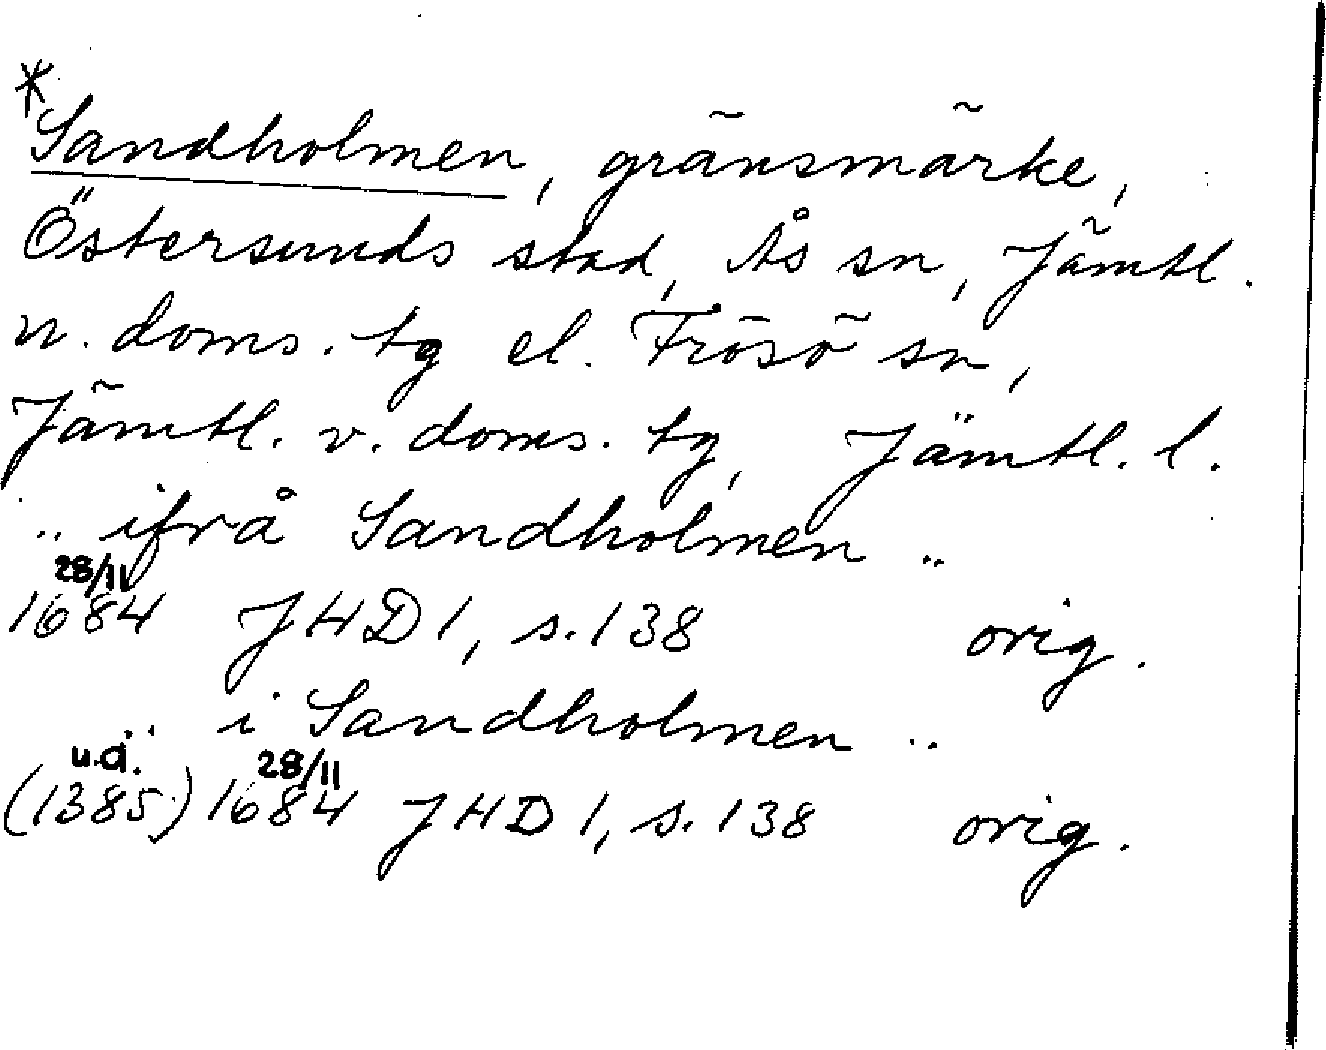 *
Sandholmen, gränsmärke,
Östersunds stad, Ås sn, Jämtl.
n. doms. tg el. Frösö sn,
Jämtl. v. doms. tg, Jämtl. l.
.. ifrå Sandholmen ..
28/11
1684 JHD 1, s. 138 orig.
.. i Sandholmen ..
u.d. 28/11
(1385) 1684 JHD 1, s. 138 orig.